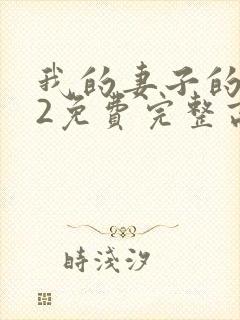 我的妻子的
2免費完整
時淺汐